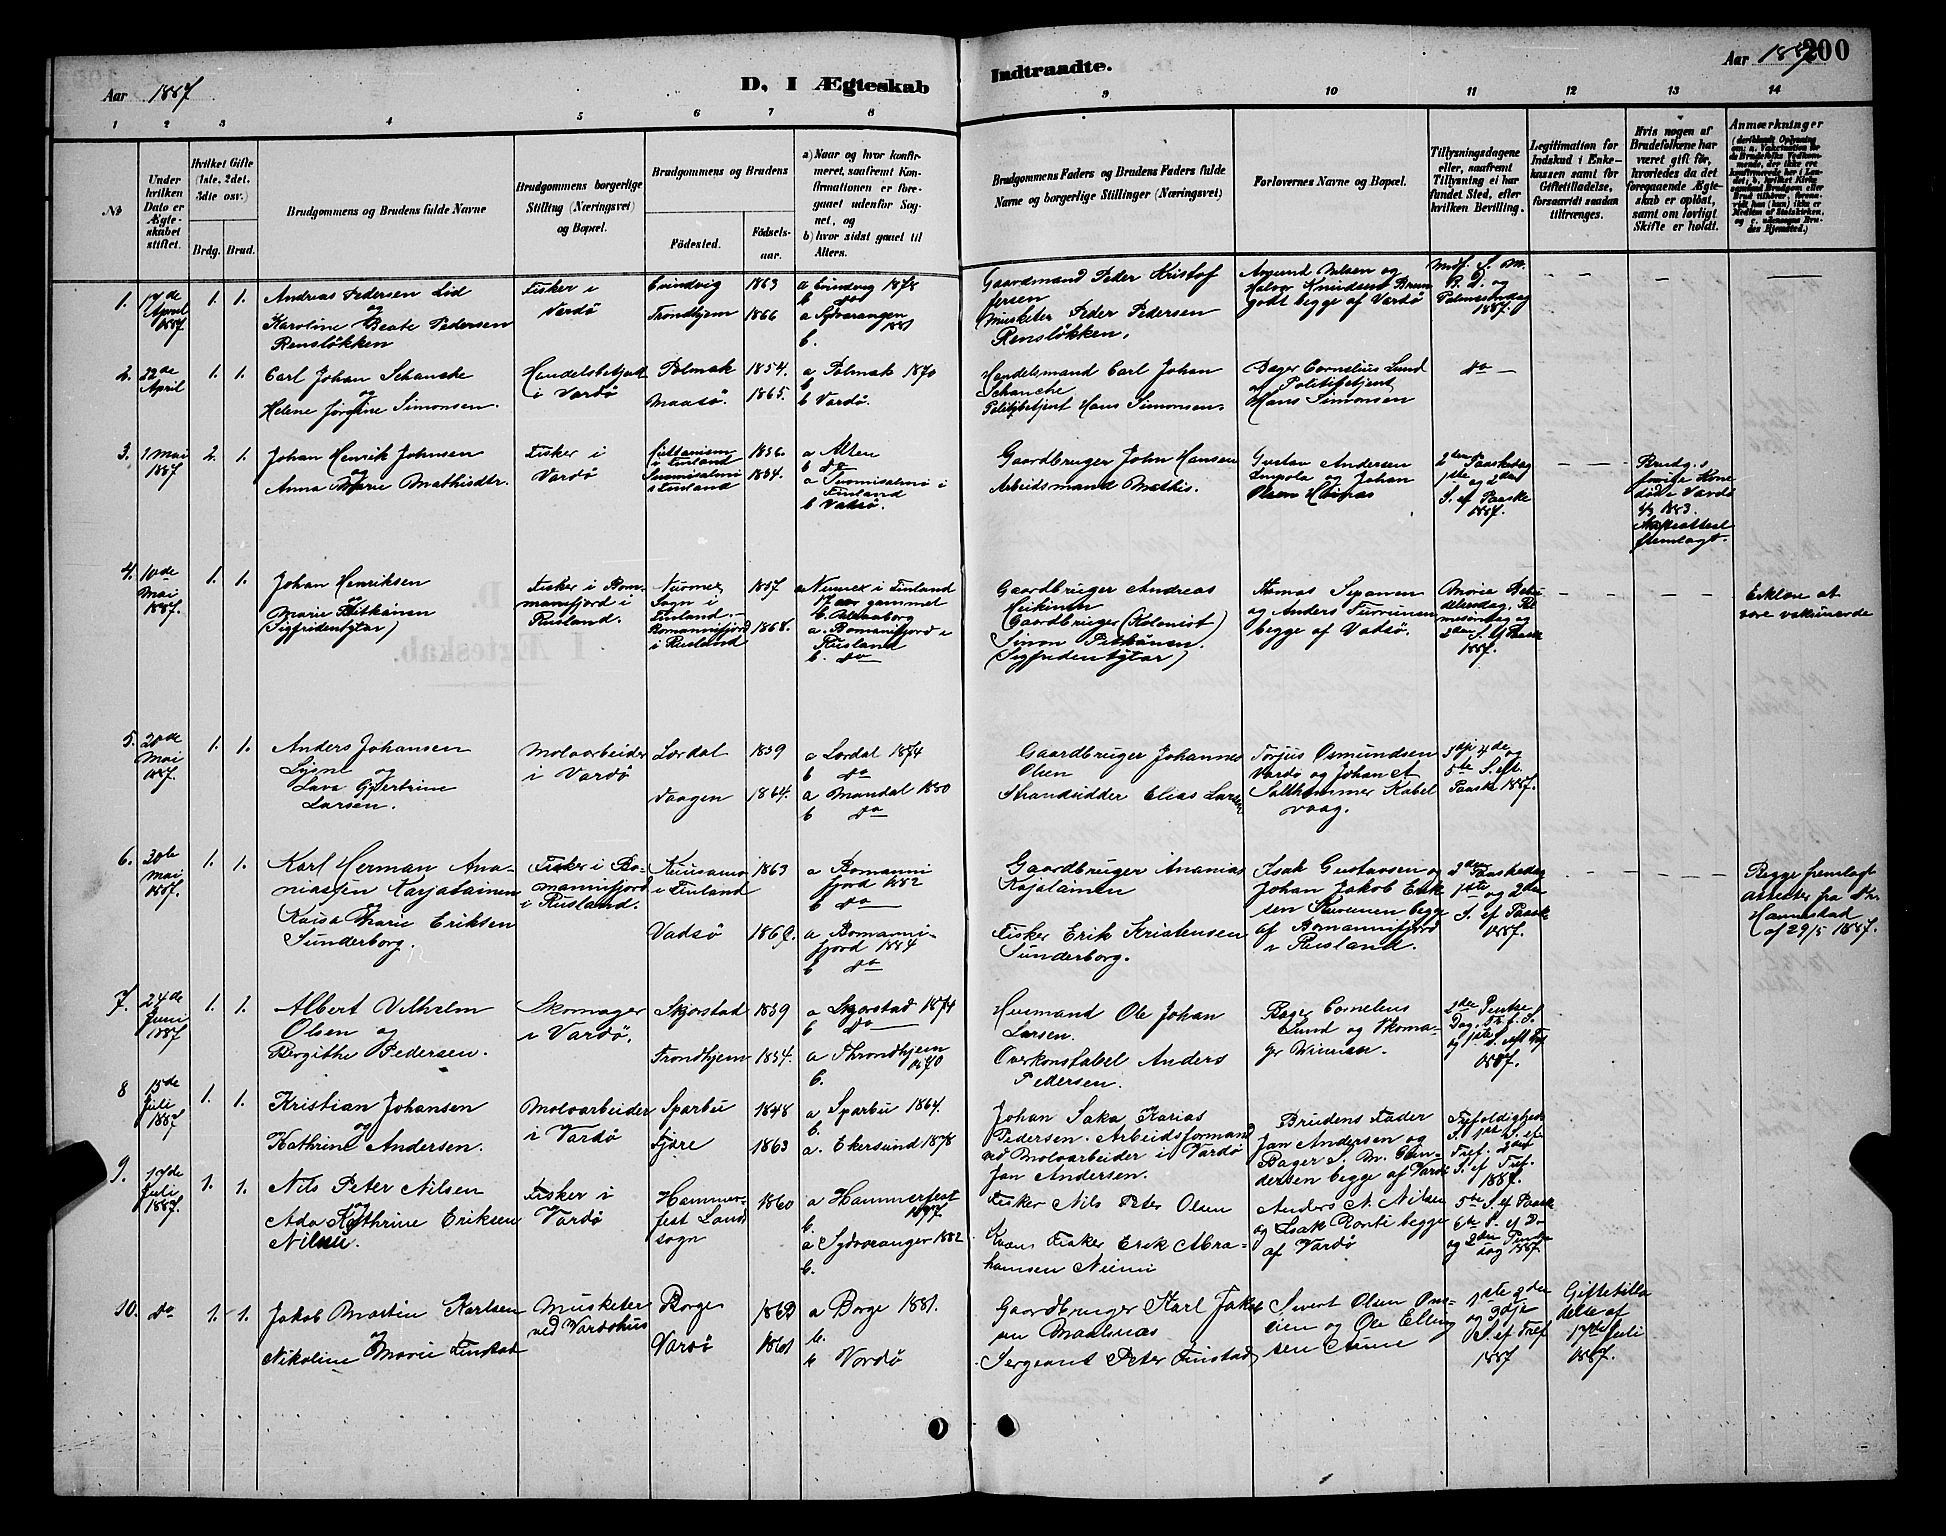 Aar 1887
D, I Ægteskab
Indtraadte.
Aar 1887
200
1 2 3 4 5 6 7 8 9 10 11 12 13 14
No
Under hvilken Dato er Ægteskabet stiftet.
Hvilket Gifte (1ste, 2det, 3die osv.)
Brdg. Brud.
Brudgommens og Brudens fulde Navne
Brudgommens borgerlige Stilling (Næringsvei) og Bopæl.
Brudgommens og Brudens
Födested.
Födselsaar.
a) Naar og hvor konfirmeret, saafremt Konfirmationen er foregaaet udenfor Sognet, og
b) hvor sidst gaaet til Alters.
Brudgommens Faders og Brudens Faders fulde Navne og borgerlige Stillinger (Næringsvei)
Forlovernes Navne og Bopæl.
Tillysningsdagene eller, saafremt Tillysning ei har fundet Sted, efter hvilken Bevilling.
Legitimation for Indskud i Enkekassen samt for Giftetilladelse, forsaavidt saadan tiltrænges.
Hvis nogen af Brudefolkene har været gift før, hvorledes da det foregaaende Ægteskab er oplöst, samt om lovligt Skifte er holdt.
Anmærkninger
1. 17de April 1887
1. 1.
Andreas Pedersen Lid
og
Karoline Beate Pedersen
Rensløkken
Fisker i
Vardø
Evindvig 1863
Trondhjem 1866
a Evindvig 1878
b do
a Sydvaranger
1881
b.
Gaardmand Peder Kristof
fersen
Musketer Peder Pedersen
Rensløkken.
Amund Nilsen og
Halvor Knudsen Brun
godt begge af Vardø
Midf. S. M.
B. D. og
Palmesøndag
1887.
2. 22de April
1. 1.
Carl Johan Schanche
og
Helene Jørgine Simonsen.
Handelsbetjent
i Vardø
Polmak 1854.
Maasø. 1865.
a Polmak 1870
b
b Vardø.
Handelsmand Carl Johan
Schanche
Politibetjent Hans Simonsen.
Bager Cornelius Lund
og Politibetjent
Hans Simonsen
do
3. 1 Mai 1887
2. 1.
Johan Henrik Johnsen
og
Anna Marie Mathisdtr.
Fisker i
Vardø
i Finland 1856
Suomisalmi
i Finland 1854.
a Alten
b do
a Suomisalmi i
Finland
b Vadsø.
Gaardbruger John Hansen
Arbeidsmand Mathis.
Gustav Andersen
og Johan
Olsen
2den Paaskedag
1ste og 2den
S. ef Paaske
1887.
Brudg.s
forrige Kone
døde Vardø
1883.
fremlagt.
4. 10de Mai 1887.
1. 1.
Johan Henriksen
og
Marie Pitkänen
(Sigfridentytar)
Fisker i Bom
manifjord i
Rusland.
Nurmes 1857
Sogn i
Finland
Bomanifjord 1868.
i Rusland
a Nurmes i Finland
17 aar gammel
b.
a. Bomanifjord i
Rusland
b. do
Gaardbruger Andreas
Heikinen
Gaardbruger (Kolonist)
Simon Pitkänen.
(Sigfridentytar)
Thomas Sipanen
og Anders
begge af Vadsø.
Maria Bebu
delsesdag, Pal
mesøndag og
2den S. ef Paaske
1887.
Erklære at
være vaksinerede
5. 20de Mai 1887.
1. 1.
Anders Johansen
Lysne
og
Lava Gjertrine
Larsen.
Moloarbeider
i Vardø
Lærdal 1859
Vaagen 1864.
a Lærdal 1874
b do
a Mandal 1880
b do
Gaardbruger Johannes
Olsen
Strandsidder Elias Larsen
Torjus Osmundsen
Vardø og Johan A
Salthammer Kabel
vaag.
3dje 4de og
5te S. eft.
Paaske 1887.
6. 30te Mai 1887.
1. 1.
Karl Herman Ana-
niassen Karjalainen
og
Kaisa Marie Eriksen
Sunderborg.
Fisker i Bo-
mannifjord
i Rusland.
Kuusamo 1863
i Finland
Vadsø 1869.
a Bomanni
fjord 1882
b do
a Bomanni-
fjord 1884
b do
Gaardbruger Ananias
Kajalainen
Fisker Erik Kristensen
Sunderborg.
Isak Gustavsen og
Johan Jakob Erik
sen begge
af Bomannifjord
i Rusland.
2den Paaskedag
1ste og 2den
S. ef Paaske
1887.
Begge fremlagt
attester fra
Hammestad
af 29/5 1887.
7. 24de Juni 1887
1. 1.
Albert Vilhelm
Olsen og
Bergithe Pedersen.
Skomager
i Vardø.
Skjørstad 1859
Trondhjem 1854.
a Skjørstad 1874
b do
a Throndhjem
1870
b.
Husmand Ole Johan
Larsen.
Overkonstabel Anders
Pedersen.
Bager Cornelius
Lund og Skoma-
ger
2den Pintse
Dag, Tref. S.
og 1ste S. eft Tref
1887.
8 15de Juli 1887
1. 1.
Kristian Johansen
og
Kathrine Andersen.
Moloarbeider
i Vardø
Sparbu 1848
Fjære 1863
a Sparbu 1864.
b.
a. Ekersund 1878
Johan Saka Karias
Pedersen. Arbeidsformand
ved Moloarbeider i Vardø
Jan Andersen.
Brudens Fader
Jan Andersen og
Bager S. M. Gun-
dersen begge af Vardø
Trefoldigheds
S. 1ste S. ef
Tref. 2den
S. ef Tref.
1887.
9. 17de Juli 1887.
1. 1.
Nils Peter Nilsen
og
Ada Kathrine Eriksen
Fisker i
Vardø
Hammer- 1860
fest Land
sogn
a Hammerfest
1877
b.
a Sydvaranger 1882
b.
Fisker Nils Peter Olsen
Kvæn Fisker Erik Abra-
hamsen Niemi
Anders N. Nilsen
og Isak Ronti begge
af Vardø
5te S. ef Paaske
6te S. ef Do
og 2den Pintse
dag 1887.
10. do
1. 1.
Jakob Martin Karlsen
og
Nikoline Marie Finstad
Musketer
ved Vardøhus
Borge 1862
Vardø 1861
a Borge 1881.
b.
b Vardø
Gaardbruger Karl Jakob
sen Maalsnæs
Sergeant Peter Finstad
Sivert Olsen
og Ole Elling
sen Aune
1ste 2den
og 3dje
S. ef Tref
1887
Giftetilla
delse af
17de Juli
1887.